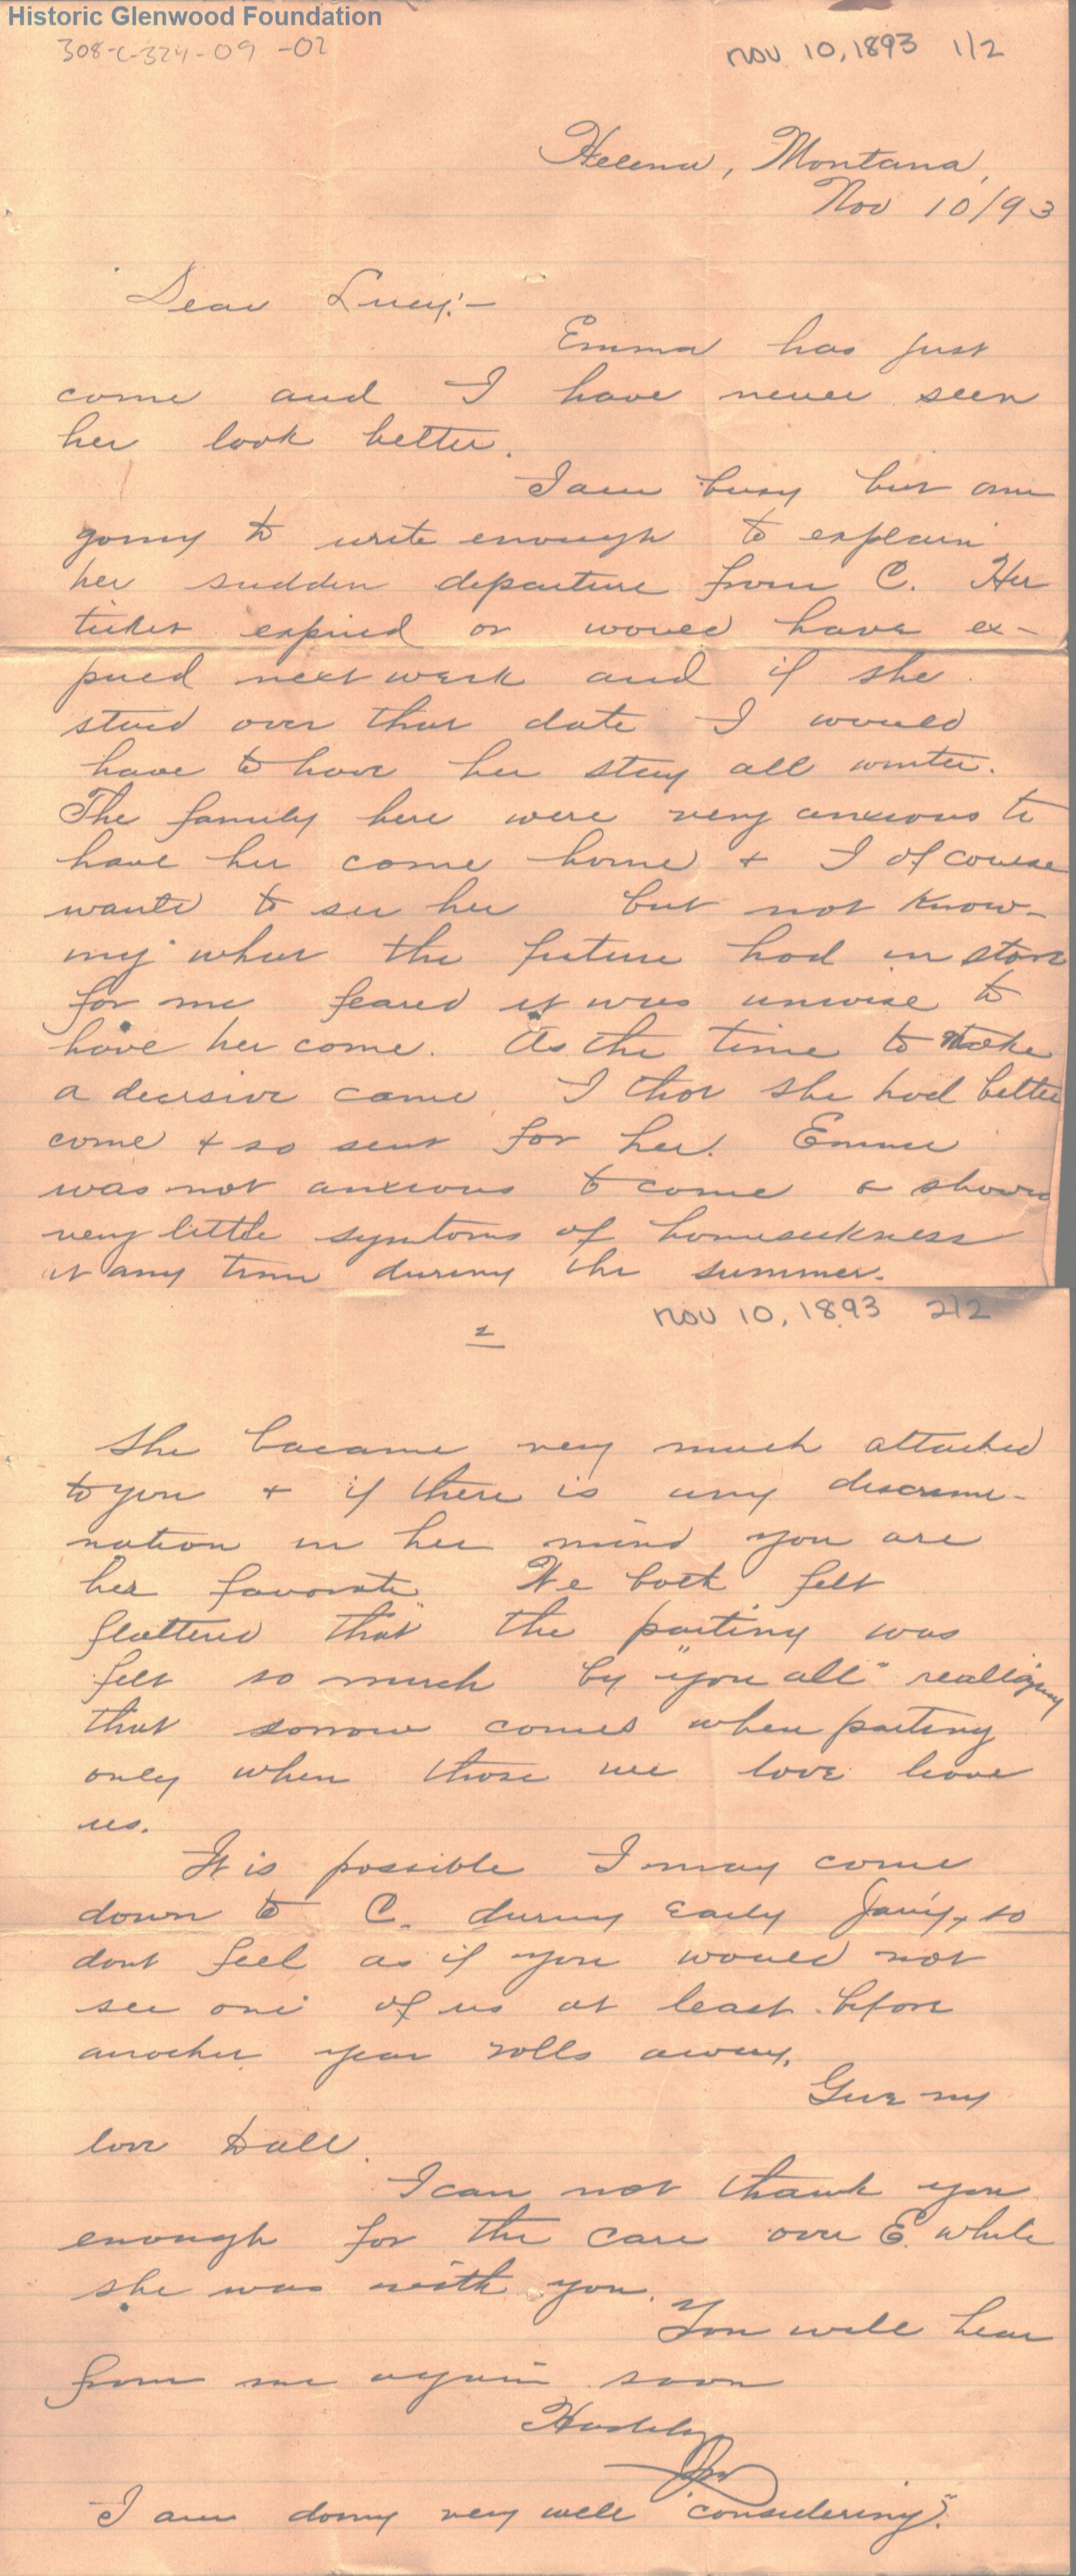 Historic Glenwood Foundation
308-C-324-09 -02
Nov 10, 1893 1/2
Helena, Montana,
Nov 10/93
Dear Lucy:-
Emma has just
come and I have never seen
her look better.
I am busy but am
going to write enough to explain
her sudden departure from C. Her
ticket expired or would have ex-
pired next week and if she
staid over that date I would
have to have her stay all winter.
The family here were very anxious to
have her come home & I of course
wanted to see her but not know-
ing what the future had in store
for me feared it was unwise to
have her come. As the time to make
a decisive came I thot she had better
come & so sent for her. Emma
was not anxious to come & shown
very little symtoms of homesickness
at any time during the summer.
Nov 10, 1893 2/2
2
She became very much attached
to you & if there is any discremi-
nation in her mind you are
her favorite. We both felt
flattered that the parting was
felt so much by "you all" realizing
that sorrow comes when parting
only when those we love leave
us.
It is possible I may come
down to C. during early Jan'y, so
dont feel as if you would not
see one of us at least before
another year rolls away.
Give my
love to all.
I can not thank you
enough for the care over E. while
she was with you.
You will hear
from me again soon
Hastily
I am doing very well "considering".